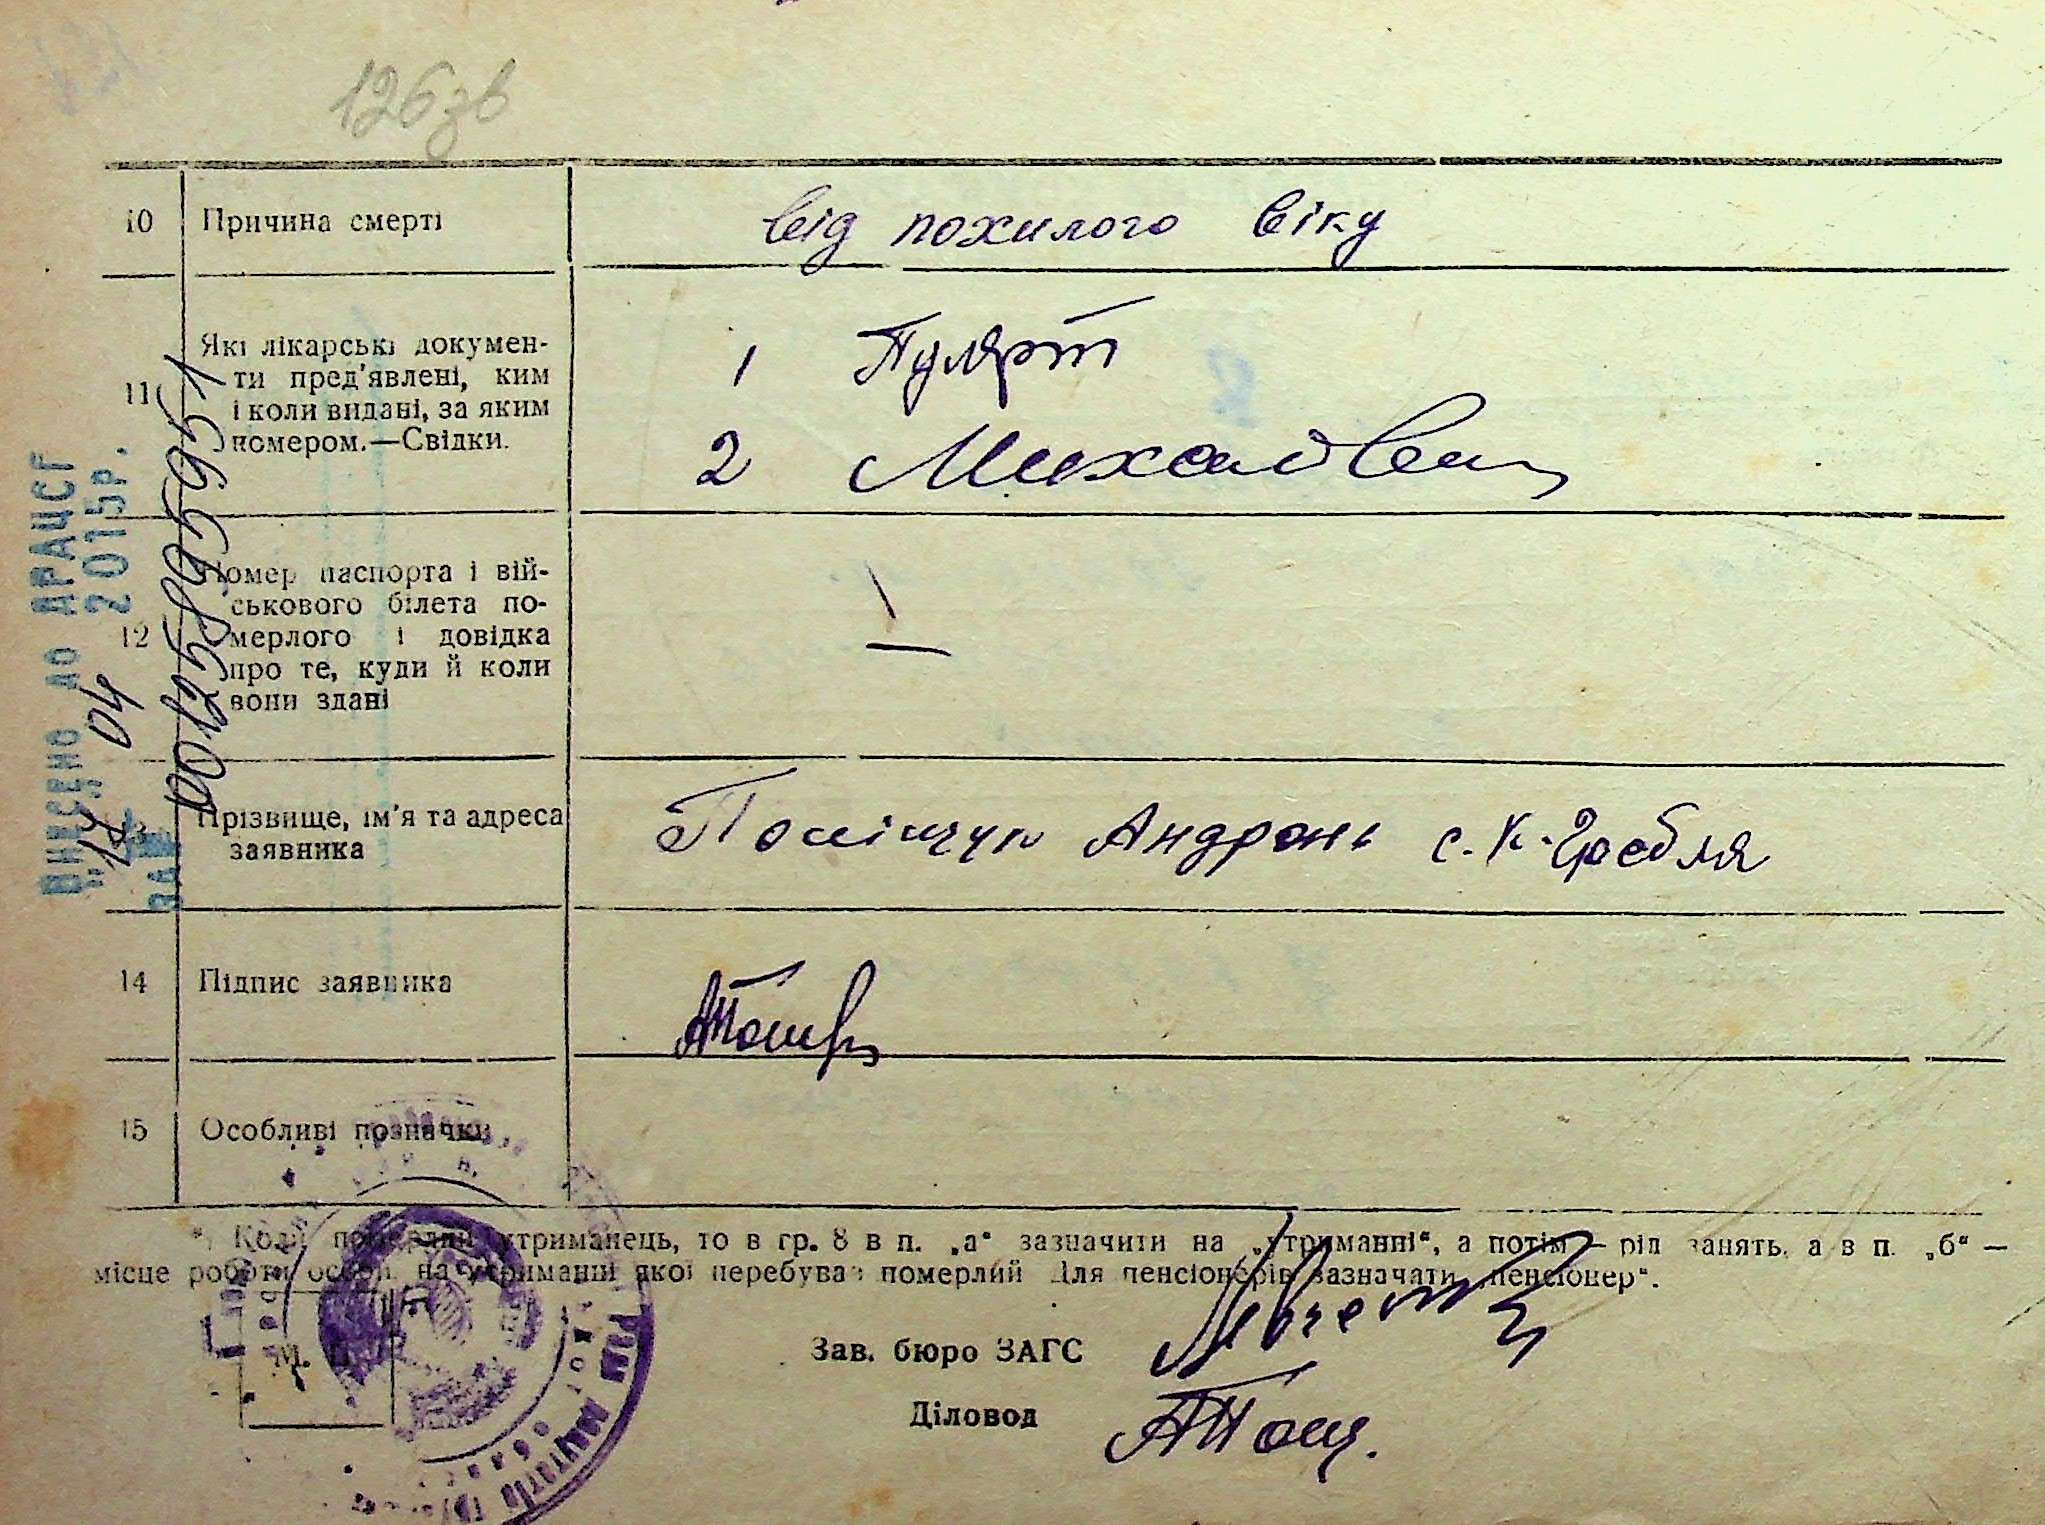 126зв
10 Причина смерті від похилого віку
11 Які лікарські докумен-
ти пред'явлені, ким
і коли видані, за яким
номером.—Свідки.
1
2
12 Номер паспорта і вій-
ськового білета по-
мерлого і довідка
про те, куди й коли
вони здані
—
Прізвище, ім'я та адреса
заявника
Андрон с. К-Гребля
14 Підпис заявника
15 Особливі позначки
Коли померлий утриманець, то в гр. 8 в п. „а“ зазначити на „утриманні“, а потім — рід занять, а в п. „б“ —
місце роботи особи, на утриманні якої перебував померлий Для пенсіонерів зазначати „пенсіонер“.
М. П.
Зав. бюро ЗАГС
Діловод
ВНЕСЕНО ДО ДРАЦСГ
„17“ 04 2015р.
ЗА № 001258995951